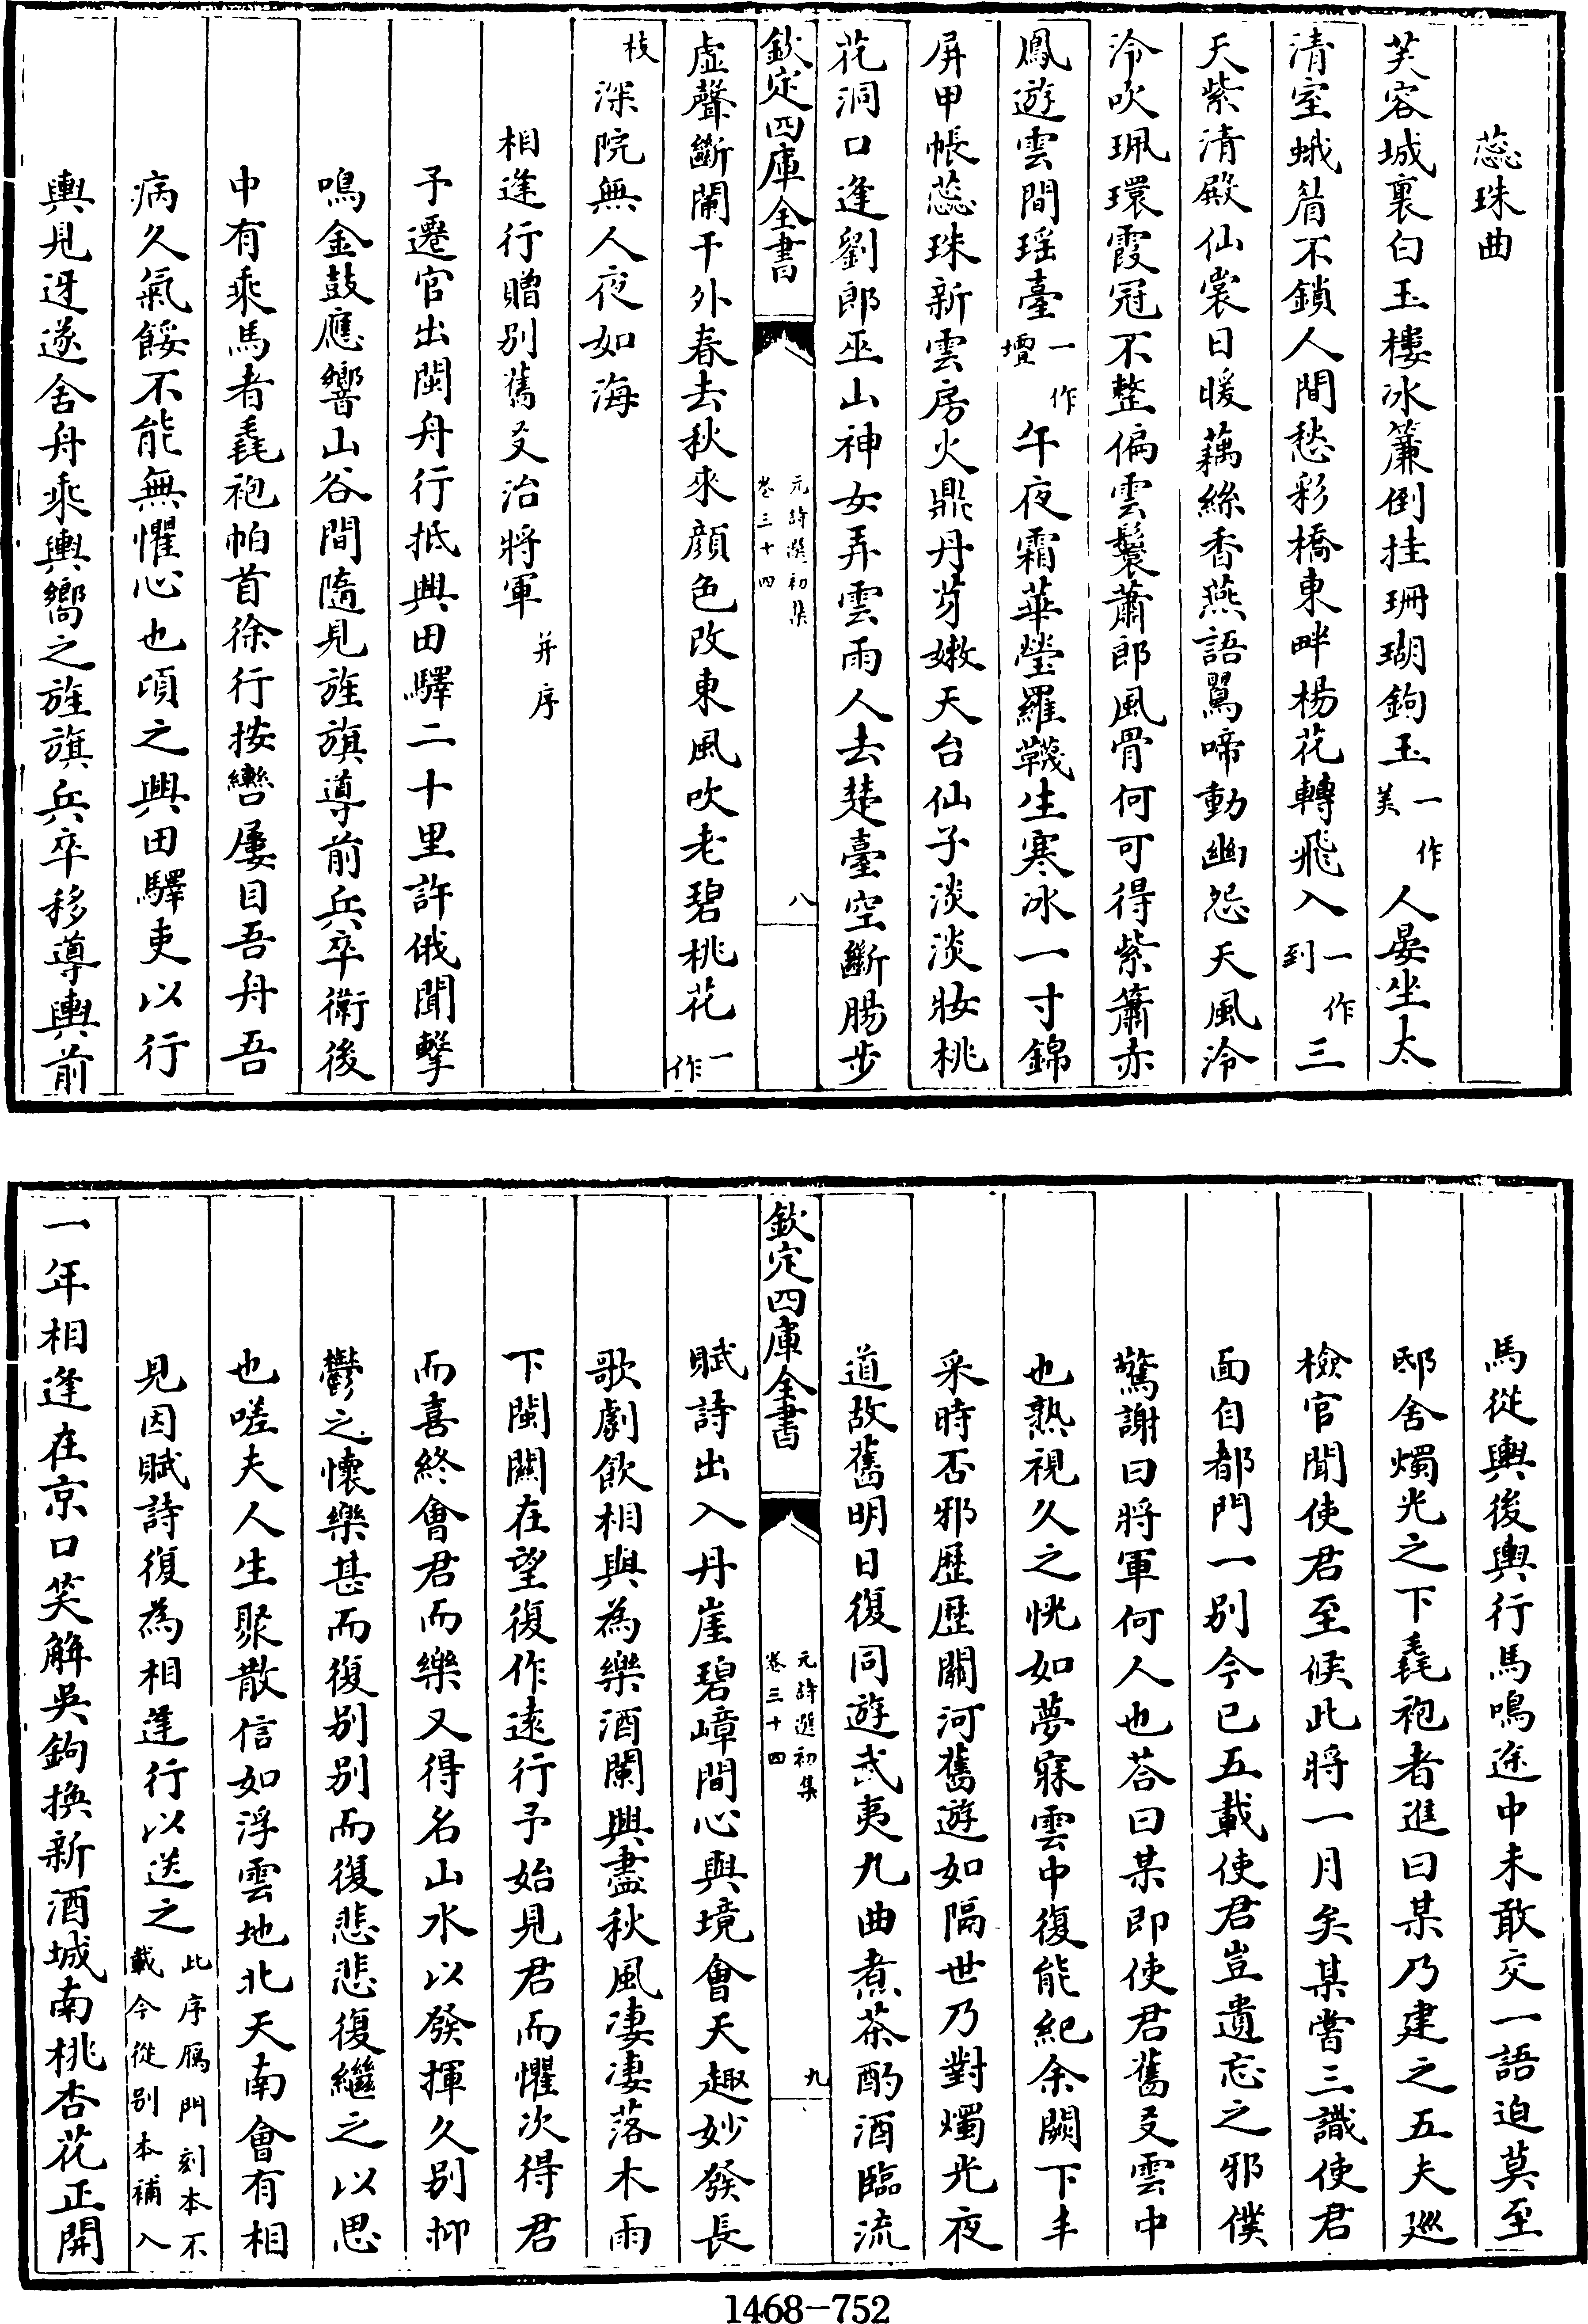 蕊珠曲
芙容城裏白玉樓冰簾倒挂珊瑚鉤玉一作美人晏坐太
清室蛾眉不鎖人間愁彩橋東畔楊花轉飛入一作到三
天紫清殿仙裳日暖藕絲香燕語鶯啼動幽怨天風泠
泠吹珮環霞冠不整偏雲鬟蕭郎風骨何可得紫簫赤
鳳遊雲間瑶臺一作壇午夜霜華瑩羅韈生寒冰一寸錦
屏甲帳蕊珠新雲房火鼎丹芽嫩天台仙子淡淡妝桃
花洞口逢劉郎巫山神女弄雲雨人去楚臺空斷腸步
欽定四庫全書
元詩選初集
卷三十四
八
虛聲斷闌干外春去秋來顔色改東風吹老碧桃花一作
枝深院無人夜如海
相逢行贈別舊友治將軍并序
予遷官出閩舟行抵興田驛二十里許俄聞擊
鳴金鼓應響山谷間隨見旌旗導前兵卒衛後
中有乘馬者毳袍帕首徐行按轡屢目吾舟吾
病久氣餒不能無懼心也頃之興田驛吏以行
輿見迓遂舍舟乘輿嚮之旌旗兵卒移導輿前
馬從輿後輿行馬鳴途中未敢交一語迫莫至
邸舍燭光之下毳袍者進曰某乃建之五夫廵
檢官聞使君至候此將一月矣某嘗三識使君
面自都門一別今已五載使君豈遺忘之邪僕
驚謝曰將軍何人也荅曰某即使君舊友雲中
也熟視久之恍如夢寐雲中復能紀余闕下丰
采時否邪歷歷關河舊遊如隔世乃對燭光夜
道故舊明日復同遊武夷九曲煮茶酌酒臨流
欽定四庫全書
元詩選初集
卷三十四
九
賦詩出入丹崖碧嶂間心與境會天趣妙發長
歌劇飲相與為樂酒闌興盡秋風凄凄落木雨
下閩關在望復作遠行予始見君而懼次得君
而喜終會君而樂又得名山水以發揮久別抑
鬱之懷樂甚而復別別而復悲悲復繼之以思
也嗟夫人生聚散信如浮雲地北天南會有相
見因賦詩復為相逢行以送之此序鴈門刻本不載今從別本補入
一年相逢在京口笑解吳鉤換新酒城南桃杏花正開
1468－752